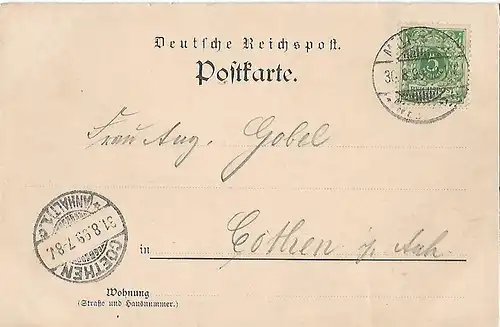 Deutsche Reichspost.
Postkarte.
30.8.99
Frau Aug. Gobel
in Cöthen i/Anh.
COETHEN
* (ANHALT) 1. c
31.8.99.7-8V.
Wohnung
(Straße und Hausnummer.)